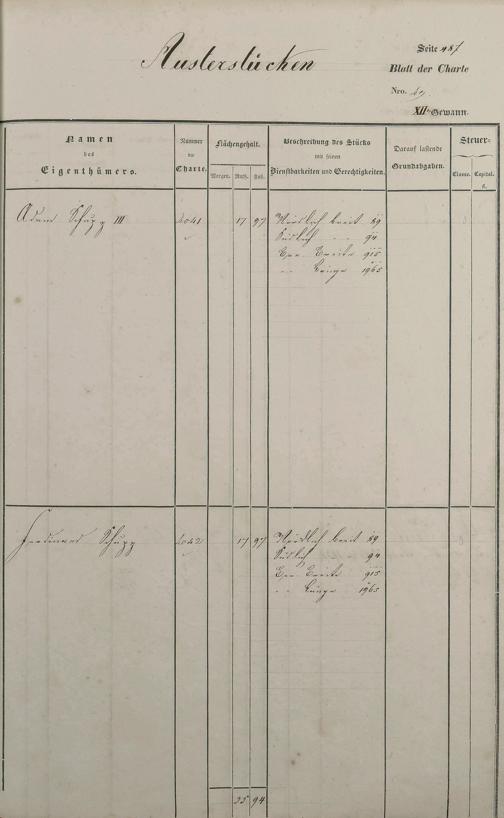 Austerstücken
Seite 487
Blatt der Charte
Nro.
XII Gewann.
Namen des Eigenthümers.
Nummer der Charte.
Flächengehalt.
Morgen. Ruth. Sch.
Beschreibung des Stücks mit seinen Dienstbarkeiten und Gerechtigkeiten.
Darauf lastende Grundabgaben.
Steuer-
Classe. Capital.
fl.
Adam Schupp III 4041 17 97 Nördlich breit 89
Südlich - - 94
Gew. Breite 915
" " Länge 1965
Ferdinand Schupp 4042 17 97 Nördlich breit 89
Südlich 94
Gew. Breite 915
" " Länge 1965
35 94